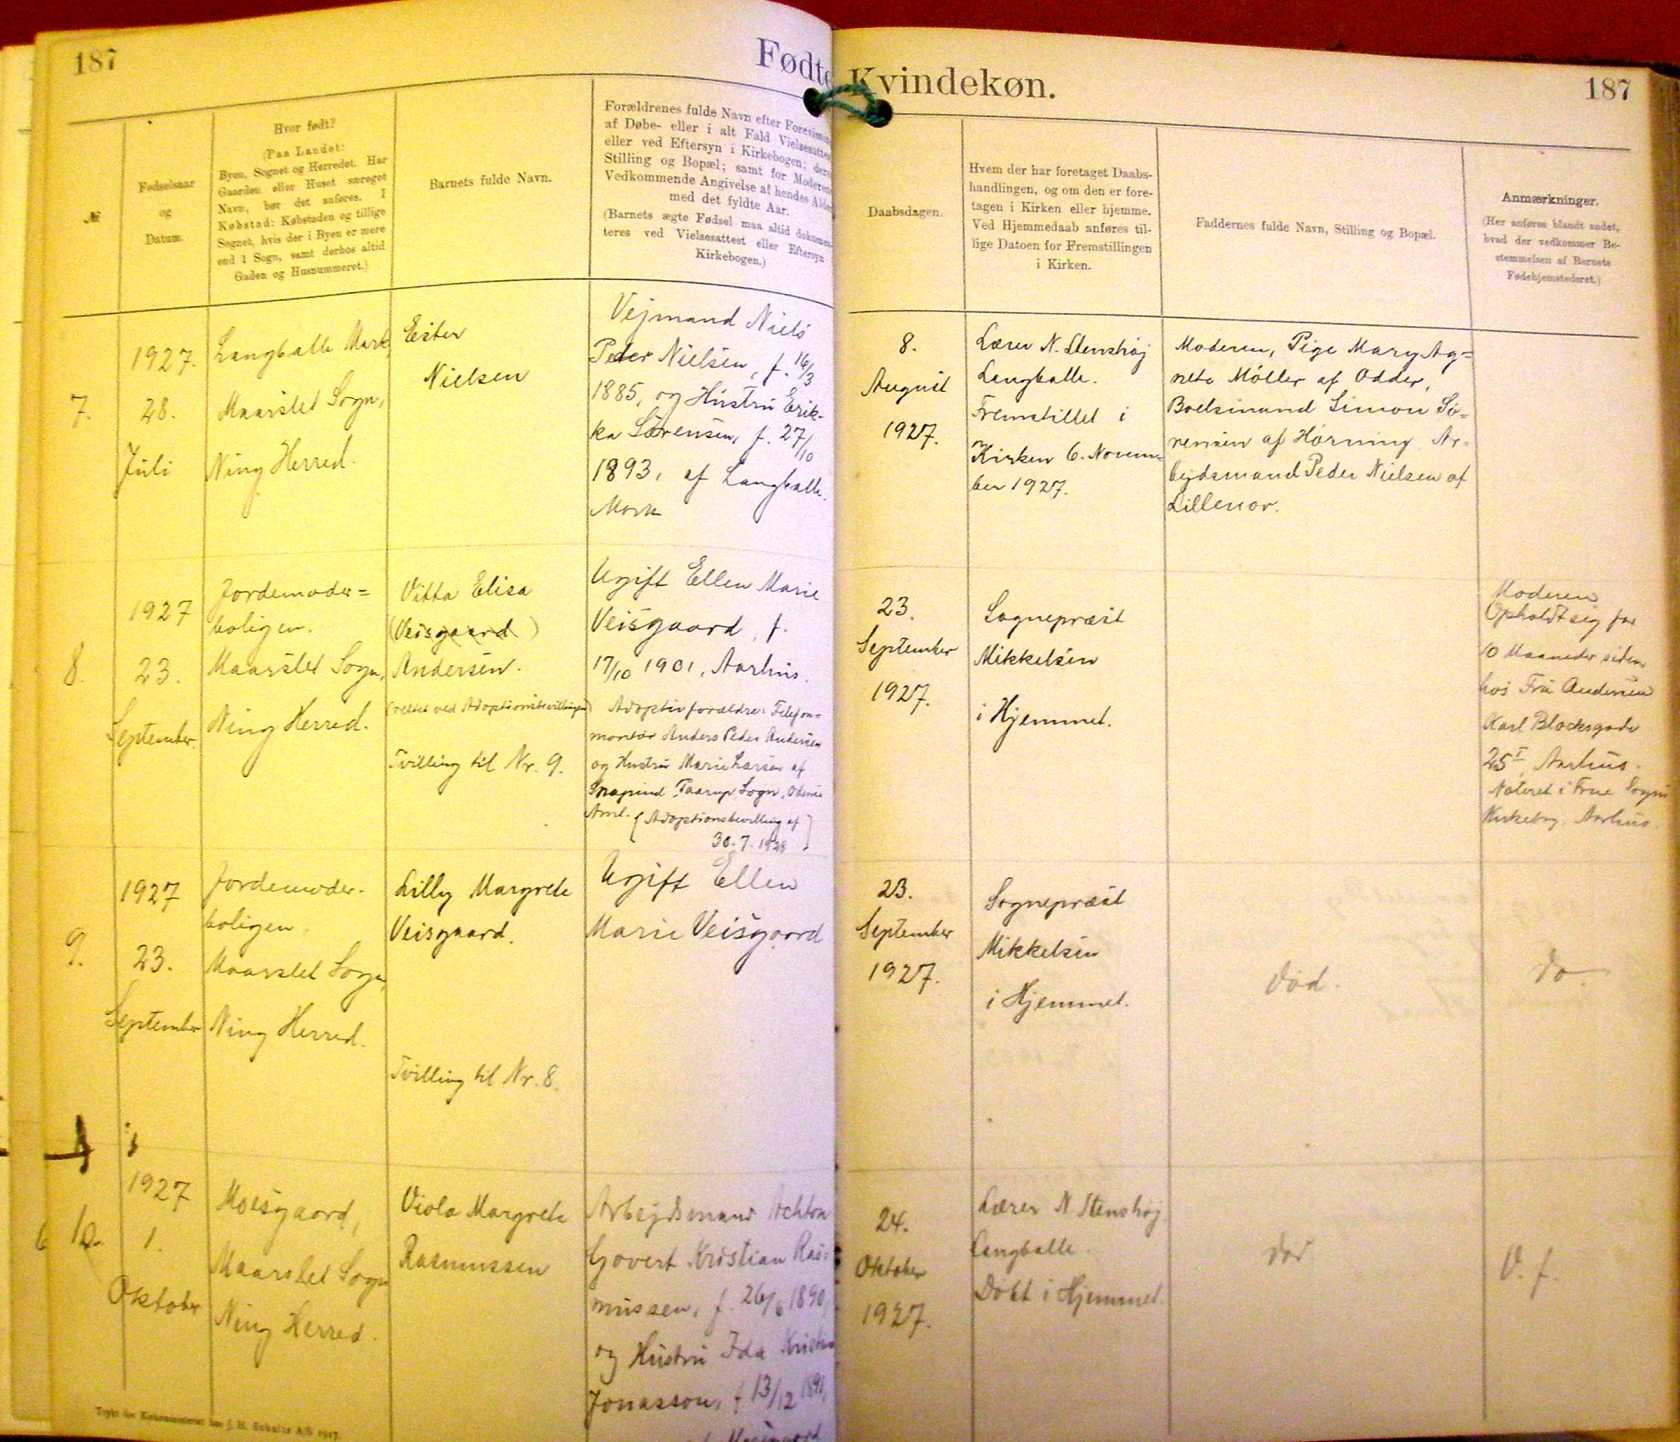 187
Fødte
Kvindekøn.
187
№
Fødselsaar
og
Datum.
Hvor født?
(Paa Landet:
Byen, Sognet og Herredet. Har
Gaarden eller Huset særeget
Navn, bør det anføres. I
Købstad: Købstaden og tillige
Sognet, hvis der i Byen er mere
end 1 Sogn, samt derhos altid
Gaden og Husnummeret.)
Barnets fulde Navn.
Forældrenes fulde Navn efter
af Døbe- eller i alt Fald
eller ved Eftersyn i Kirkebogen;
Stilling og Bopæl; samt for
Vedkommende Angivelse af hendes
med det fyldte Aar.
(Barnets ægte Fødsel maa altid
teres ved Vielsesattest eller Eftersyn
Kirkebogen.)
Daabsdagen.
Hvem der har foretaget Daabs-
handlingen, og om den er fore-
tagen i Kirken eller hjemme.
Ved Hjemmedaab anføres til-
lige Datoen for Fremstillingen
i Kirken.
Faddernes fulde Navn, Stilling og Bopæl.
Anmærkninger.
(Her anføres blandt andet,
hvad der vedkommer Be-
stemmelsen af Barnets
Fødehjemstedsret.)
7.
1927.
28.
Juli
Langballe Mark
Maarslet Sogn,
Ning Herred.
Ester
Nielsen
Vejmand Niels
Peder Nielsen, f. 16/3
1885, og Hustru Erik-
ka Sørensen, f. 27/10
1893, af Langballe
Mark
8.
August
1927.
Lærer N. Stenshøj
Langballe.
Fremstillet i
Kirken 6. Novem-
ber 1927.
Moderen, Pige Mary Ag=
nete Møller af Odder,
Boelsmand Simon Sø=
rensen af Hørning Ar=
bejdsmand Peder Nielsen af
Lillenor.
8.
1927
23.
September.
Jordemoder=
boligen.
Maarslet Sogn,
Ning Herred.
Vitta Elisa
(Veisgaard)
Andersen.
(rettet ved Adoptionsbevillingen)
Tvilling til Nr. 9.
Ugift Ellen Marie
Veisgaard, f.
17/10 1901, Aarhus.
Adoptivforældre: Telefon=
montør Anders Peder Andersen
og Hustru Marie Larsen af
Taarup Sogn, Odense
Amt. (Adoptionsbevilling af
30-7-1928)
23.
September
1927.
Sognepræst
Mikkelsen
i Hjemmet.
Moderen
Opholdt sig for
10 Maaneder siden
hos Fru Andersen
Karl Blocksgade
25 I, Aarhus.
Noteret i Frue Sogns
Kirkebog, Aarhus.
9.
1927
23.
September
Jordemoder-
boligen
Maarslet Sogn,
Ning Herred.
Lilly Margrete
Veisgaard.
Tvilling til Nr. 8.
Ugift Ellen
Marie Veisgaard
23.
September
1927.
Sognepræst
Mikkelsen
i Hjemmet.
død.
do
10.
1927
1.
Oktober
Moesgaard,
Maarslet Sogn
Ning Herred.
Viola Margrete
Rasmussen
Arbejdsmand Achton
Govert Kristian Ras-
mussen, f. 26/6 1890,
og Hustru Ida
Jonasson, f 13/12 1891,
24.
Oktober
1927.
Lærer N Stenshøj,
Langballe.
Døbt i Hjemmet.
død
O. f.
Trykt for Kirkeministeriet hos J. H. Schultz A/S 1927.